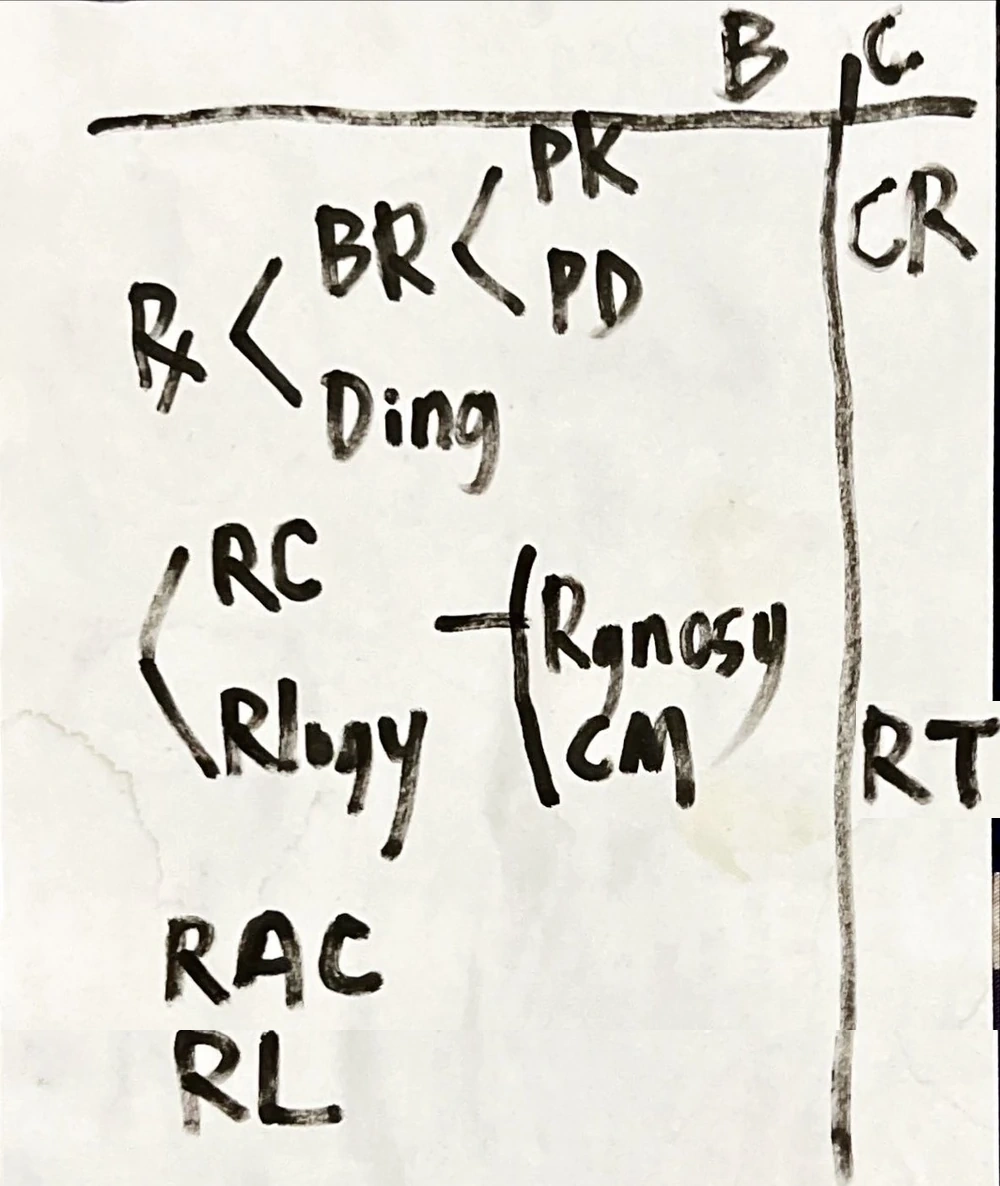 B C
PK
CR
BR
PD
Rx
Ding
RC
Rgnosy
Rlogy
CM
RT
RAC
RL